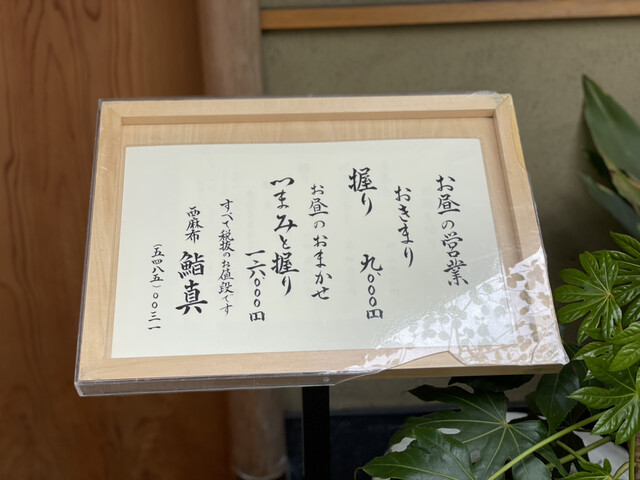 お昼の営業
おきまり
握り 九〇〇〇円
お昼のおまかせ
つまみと握り
一六〇〇〇円
すべて税抜のお値段です
西麻布 鮨真
(五四八五)〇〇三一